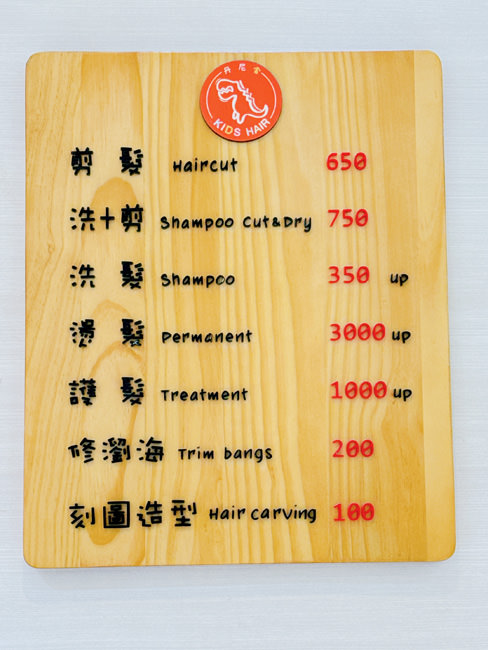 丹尼舍
KIDS HAIR
剪髮 Haircut 650
洗+剪 Shampoo Cut&Dry 750
洗髮 Shampoo 350 up
燙髮 Permanent 3000 up
護髮 Treatment 1000 up
修瀏海 Trim bangs 200
刻圖造型 Hair carving 100